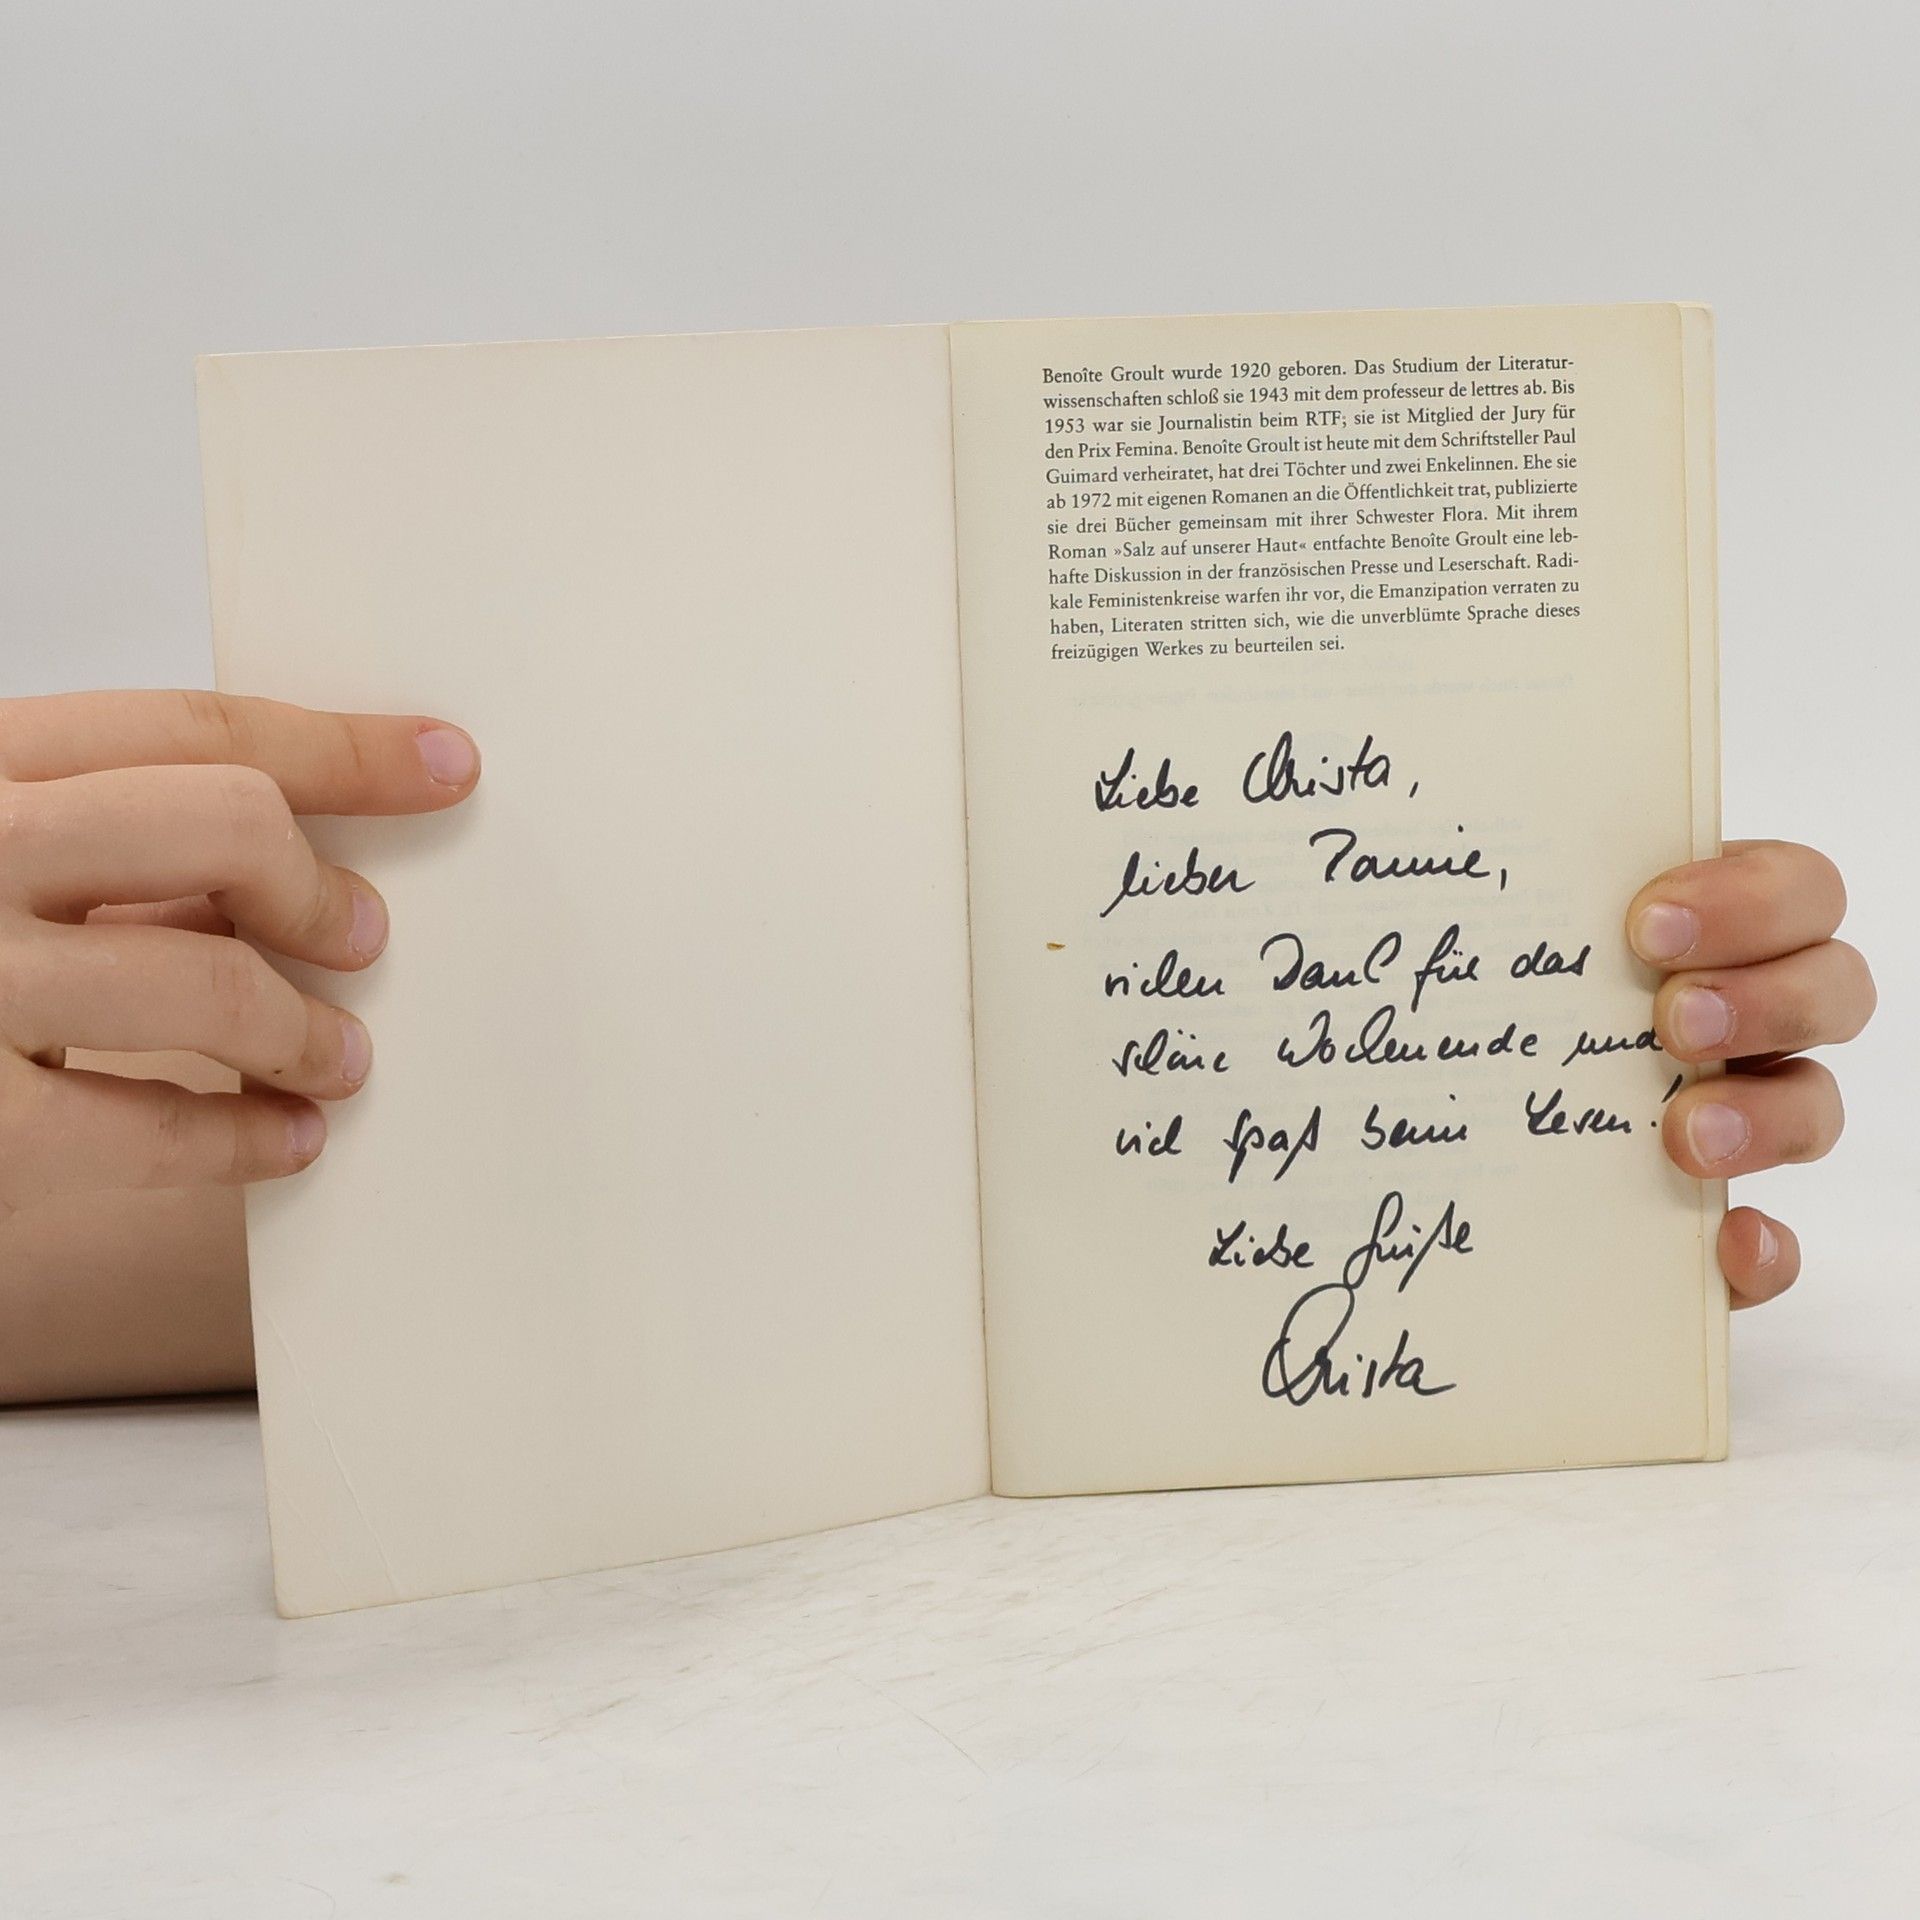 Benoîte Groult wurde 1920 geboren. Das Studium der Literatur-
wissenschaften schloß sie 1943 mit dem professeur de lettres ab. Bis
1953 war sie Journalistin beim RTF; sie ist Mitglied der Jury für
den Prix Femina. Benoîte Groult ist heute mit dem Schriftsteller Paul
Guimard verheiratet, hat drei Töchter und zwei Enkelinnen. Ehe sie
ab 1972 mit eigenen Romanen an die Öffentlichkeit trat, publizierte
sie drei Bücher gemeinsam mit ihrer Schwester Flora. Mit ihrem
Roman »Salz auf unserer Haut« entfachte Benoîte Groult eine leb-
hafte Diskussion in der französischen Presse und Leserschaft. Radi-
kale Feministenkreise warfen ihr vor, die Emanzipation verraten zu
haben, Literaten stritten sich, wie die unverblümte Sprache dieses
freizügigen Werkes zu beurteilen sei.
Liebe Christa,
lieber
vielen Dank für das
schöne Wochenende und
viel Spaß beim Lesen!
Liebe Grüße
Christa